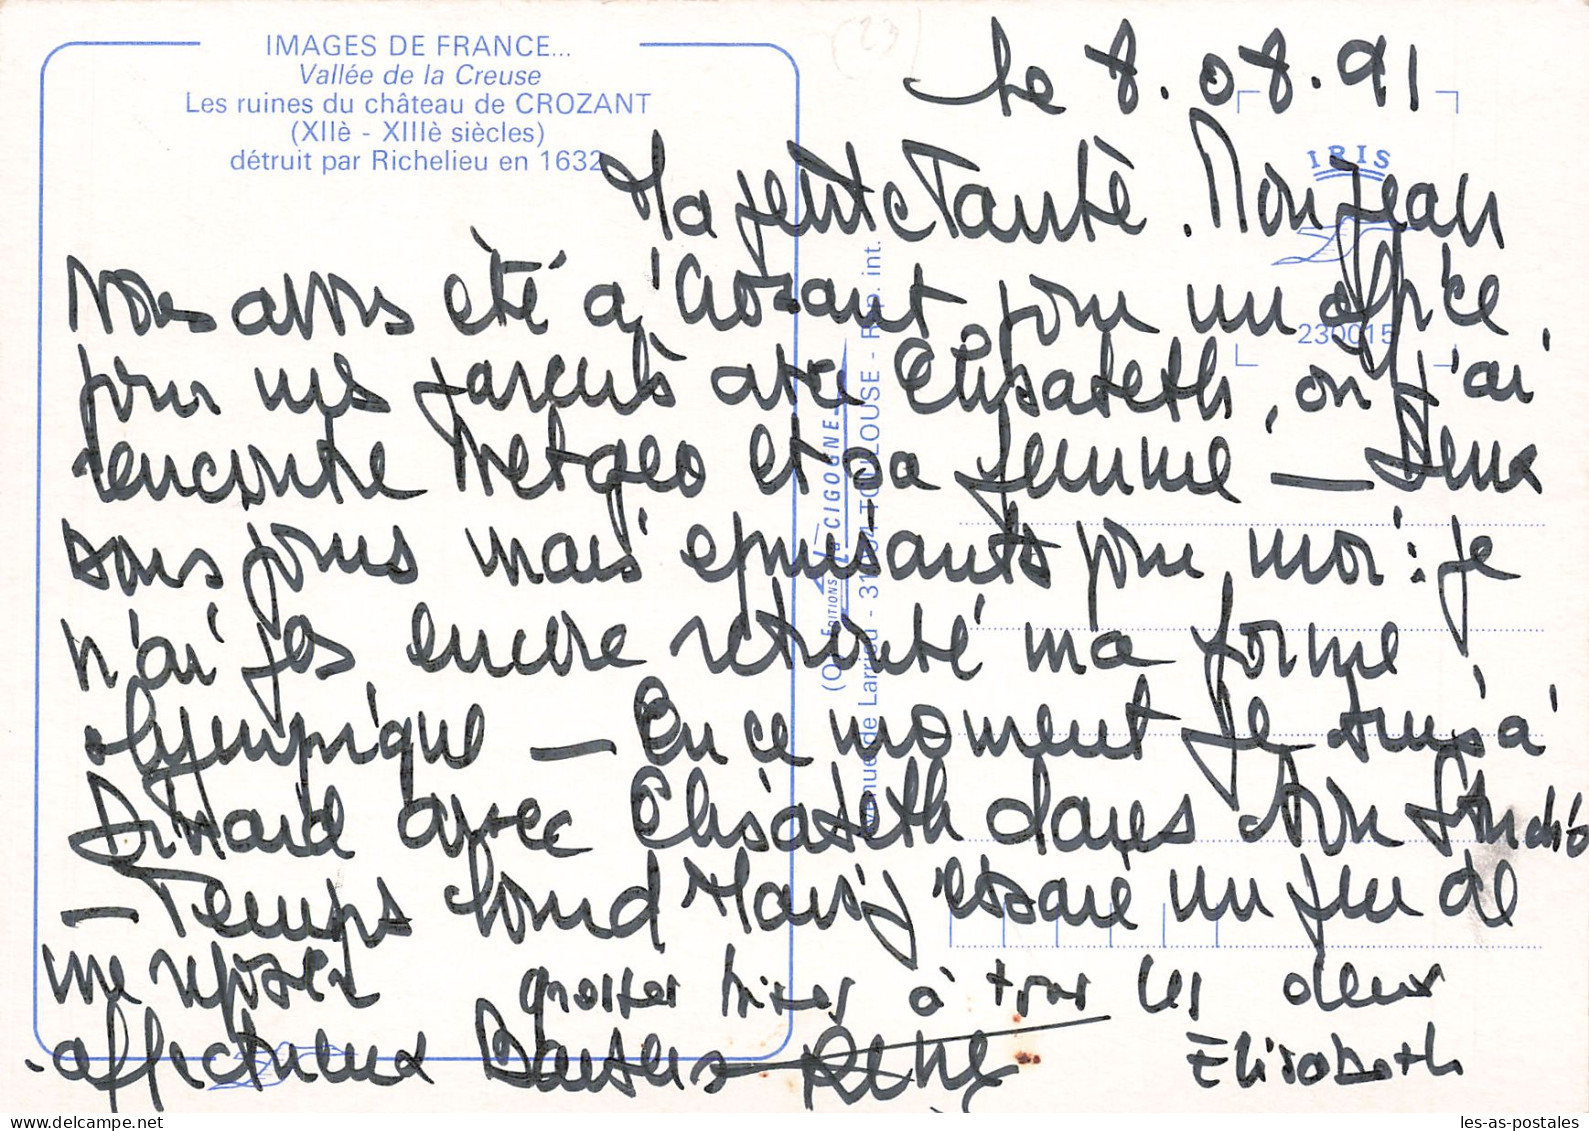 IMAGES DE FRANCE...
Vallée de la Creuse
Les ruines du château de CROZANT
(XIIè - XIIIè siècles)
détruit par Richelieu en 1632
(23)
Le 8.08.91
IRIS
230015
Ma petite Tante. Mon Jean
Nous avons été à Crozant pour un office
pour mes parents avec Elisabeth, où j'ai
rencontré et sa femme — Deux
bons jours mais épuisants pour moi : je
n'ai pas encore retrouvé ma forme
olympique — En ce moment je suis à
Dinard avec Elisabeth dans son studio
— Temps lourd Mais j'essaie un peu de
me reposer grosses bises à tous les deux
affectueux Baisers René Elisabeth
EDITIONS LA CIGOGNE
Avenue de Larrieu - 31 TOULOUSE - Rep. int.
les-as-postales